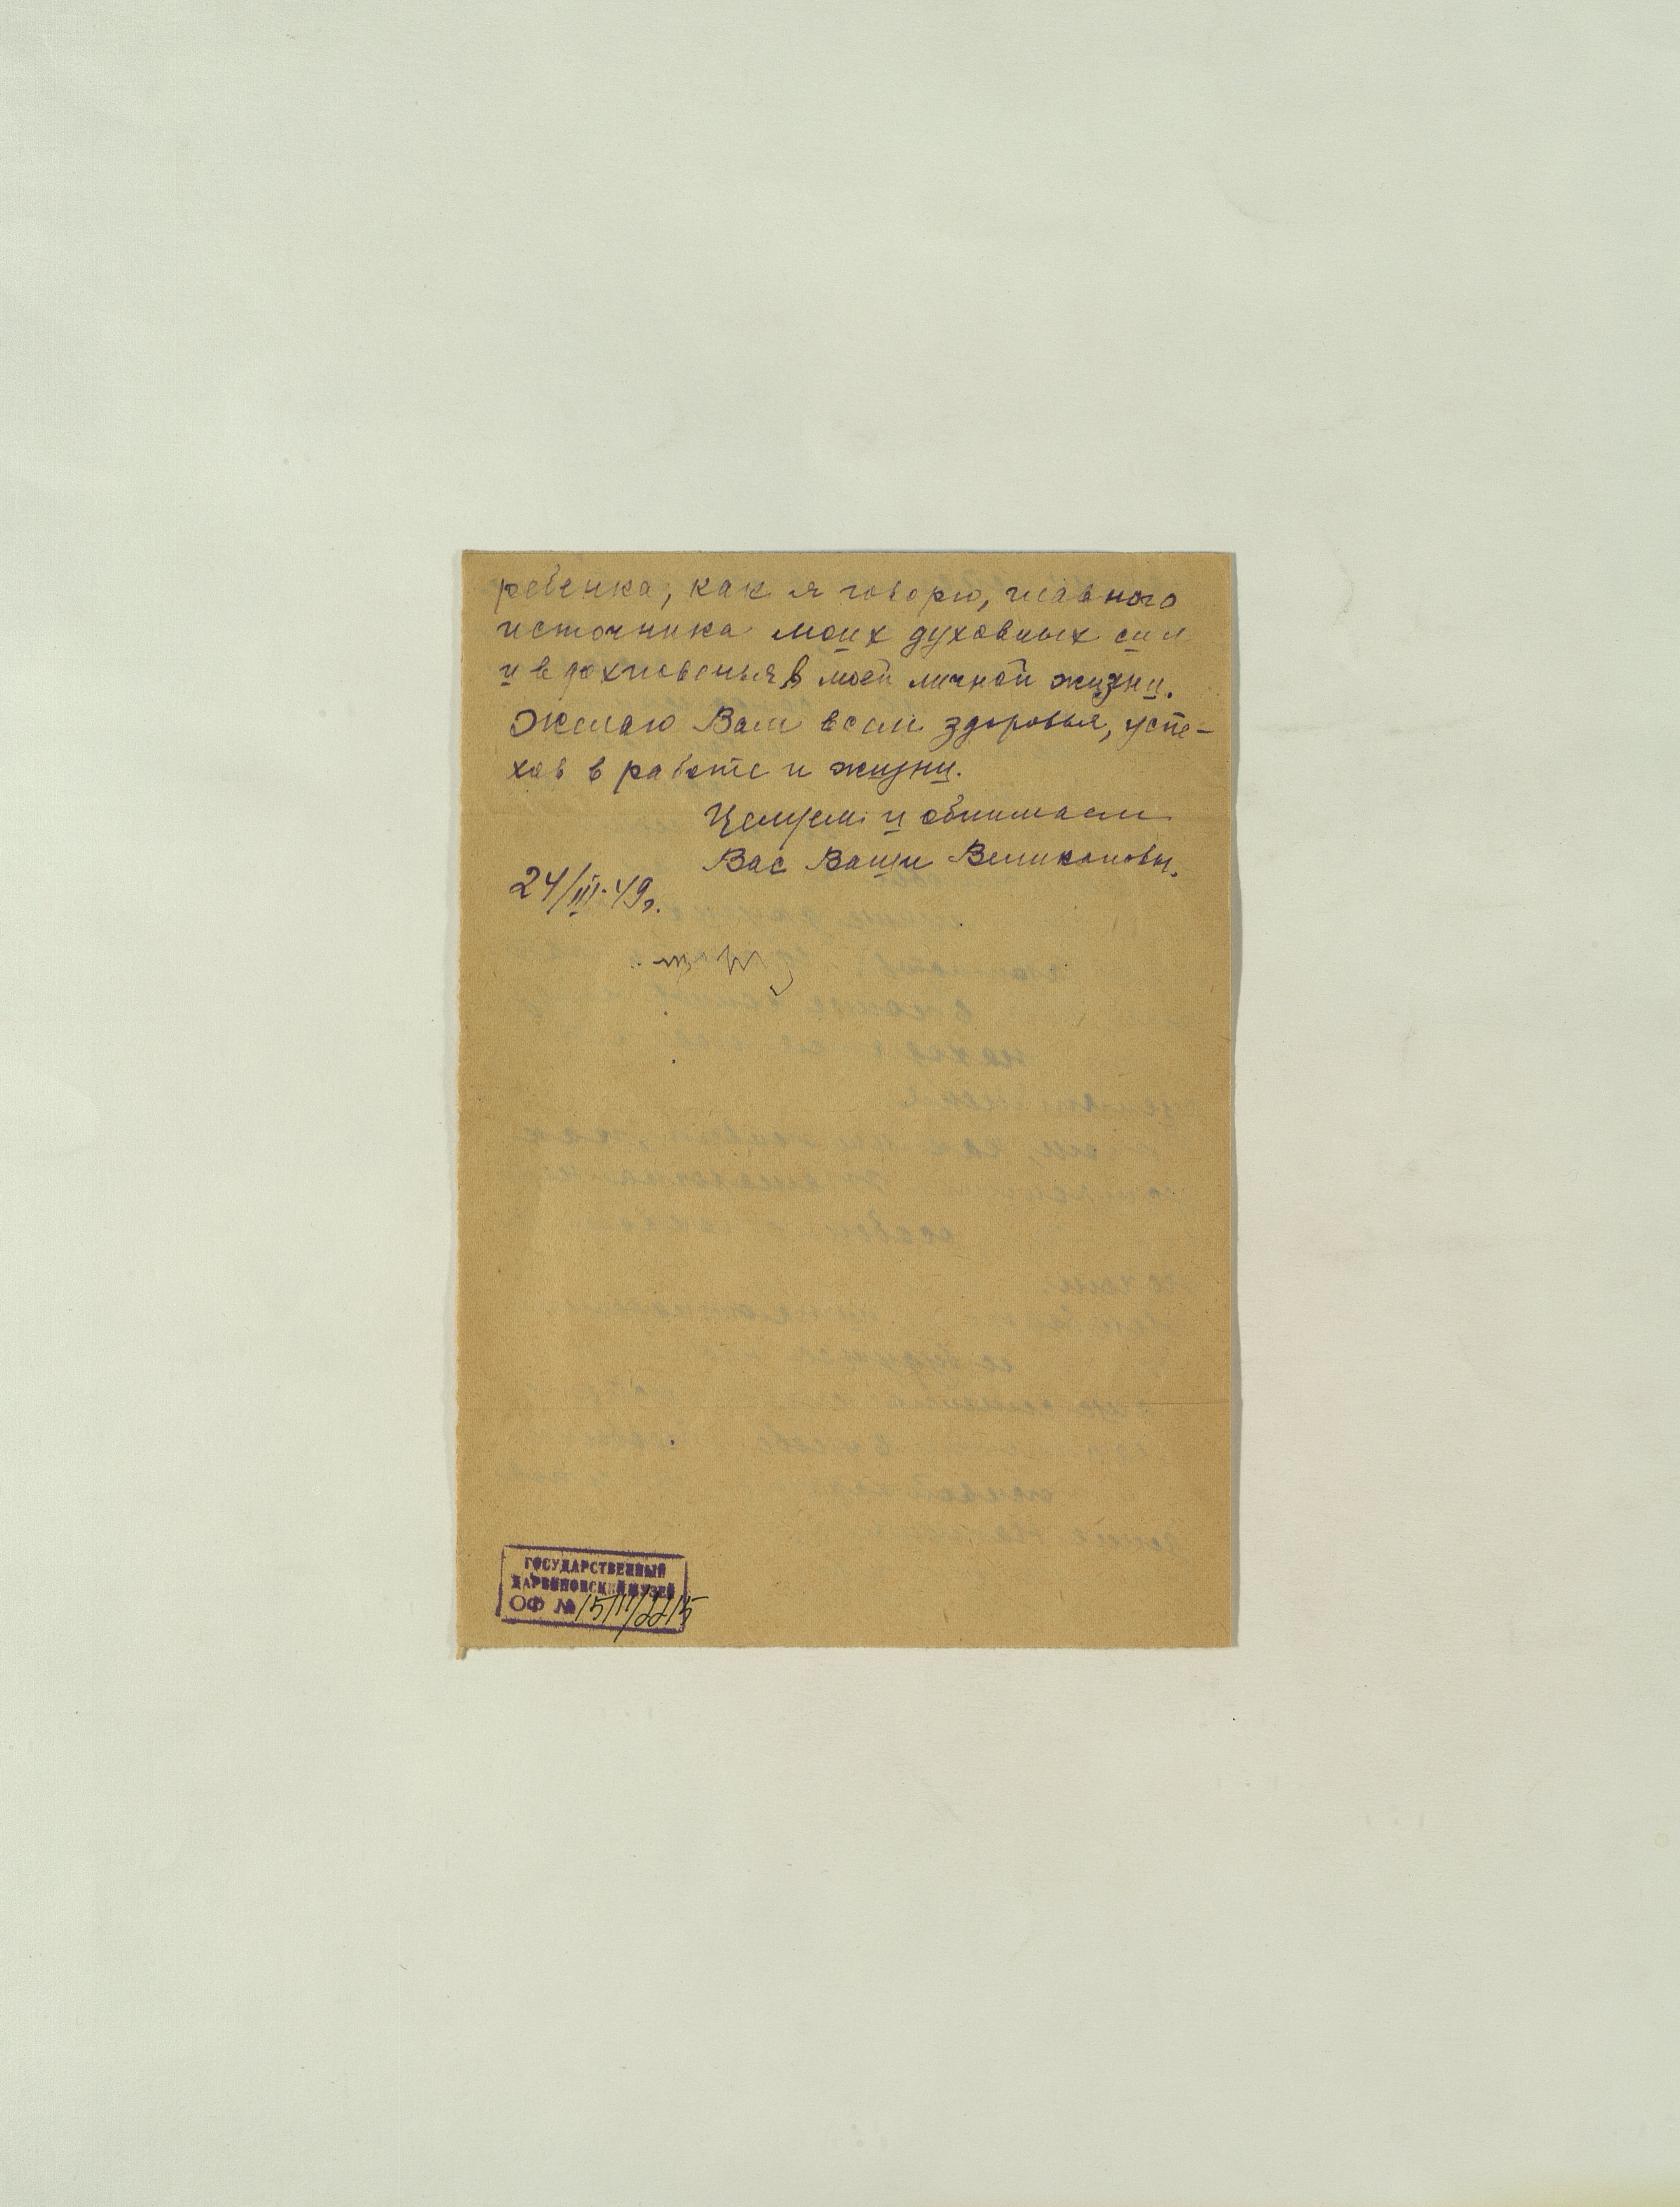 ребенка, как я говорю, главного
источника моих духовных сил
и вдохновенья в моей личной жизни.
Желаю Вам всем здоровья, успе-
хов в работе и жизни.
Целуем и обнимаем
Вас Ваши Великановы.
24/III-49г.
ГОСУДАРСТВЕННЫЙ
ДАРВИНОВСКИЙ МУЗЕЙ
ОФ №